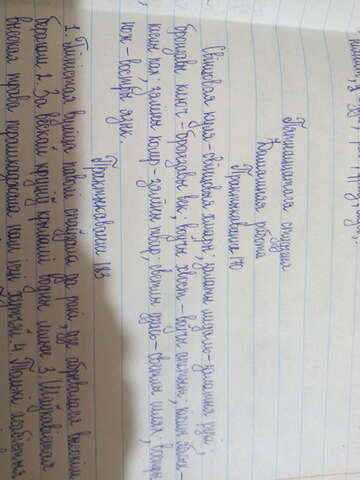 Пятнаццатага студзеня
Дамашняя работа
Практыкаванне 170
Свінцовая куля - свінцовыя хмары; залаты медаль - залатыя рукі;
бронзавы ключ - бронзавы век; воўчы хвост - воўчы апетыт; кіслы яблык -
кіслы пах; зялёны колер - зялёны твар; светлы дзень - светлы шлях; востры
нож - востры язык.
Практыкаванне 183
1. Цяністая вуліца паволі спаўзала да ракі, дзе абрывалася высокім
берагам 2. За вёскай круціў крыламі вадяны млын 3. Шаўкавістая
высокая трава перашкаджала нам ісці хутчэй. 4. Толькі